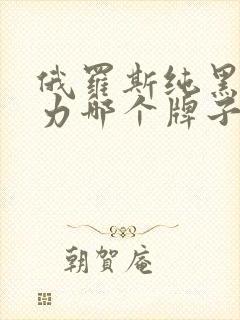 俄羅斯純黑
力那个牌子
朝賀庵